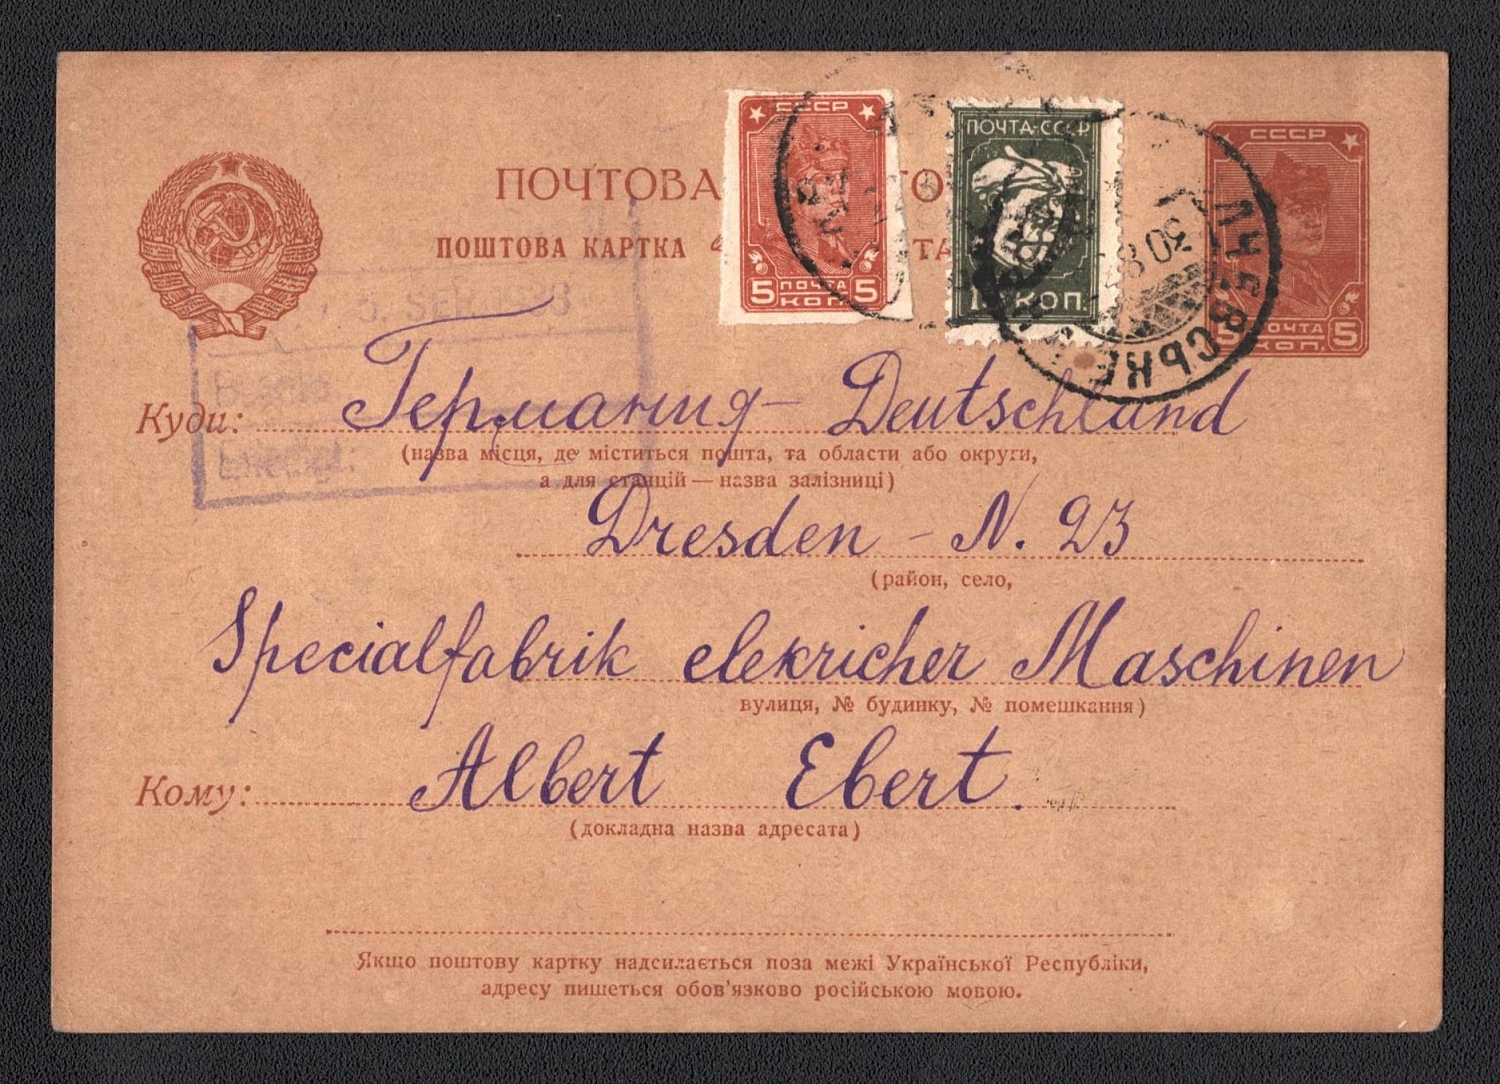 СССР
5 ПОЧТА 5
КОП.
ПОЧТА·СССР
КОП.
СССР
5 ПОЧТА 5
КОП.
ПОЧТОВА
ПОШТОВА КАРТКА
30 8
Куди: Германия – Deutschland
(назва місця, де міститься пошта, та области або округи,
а для станцій — назва залізниці)
Dresden – N. 23
(район, село,
Specialfabrik elekricher Maschinen
вулиця, № будинку, № помешкання)
Кому: Albert Ebert.
(докладна назва адресата)
Якщо поштову картку надсилається поза межі Української Республіки,
адресу пишеться обов'язково російською мовою.